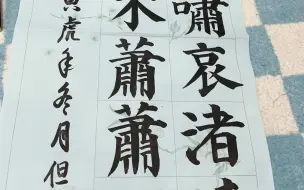 嘯哀渚
木蕭蕭
寅虎年冬月但